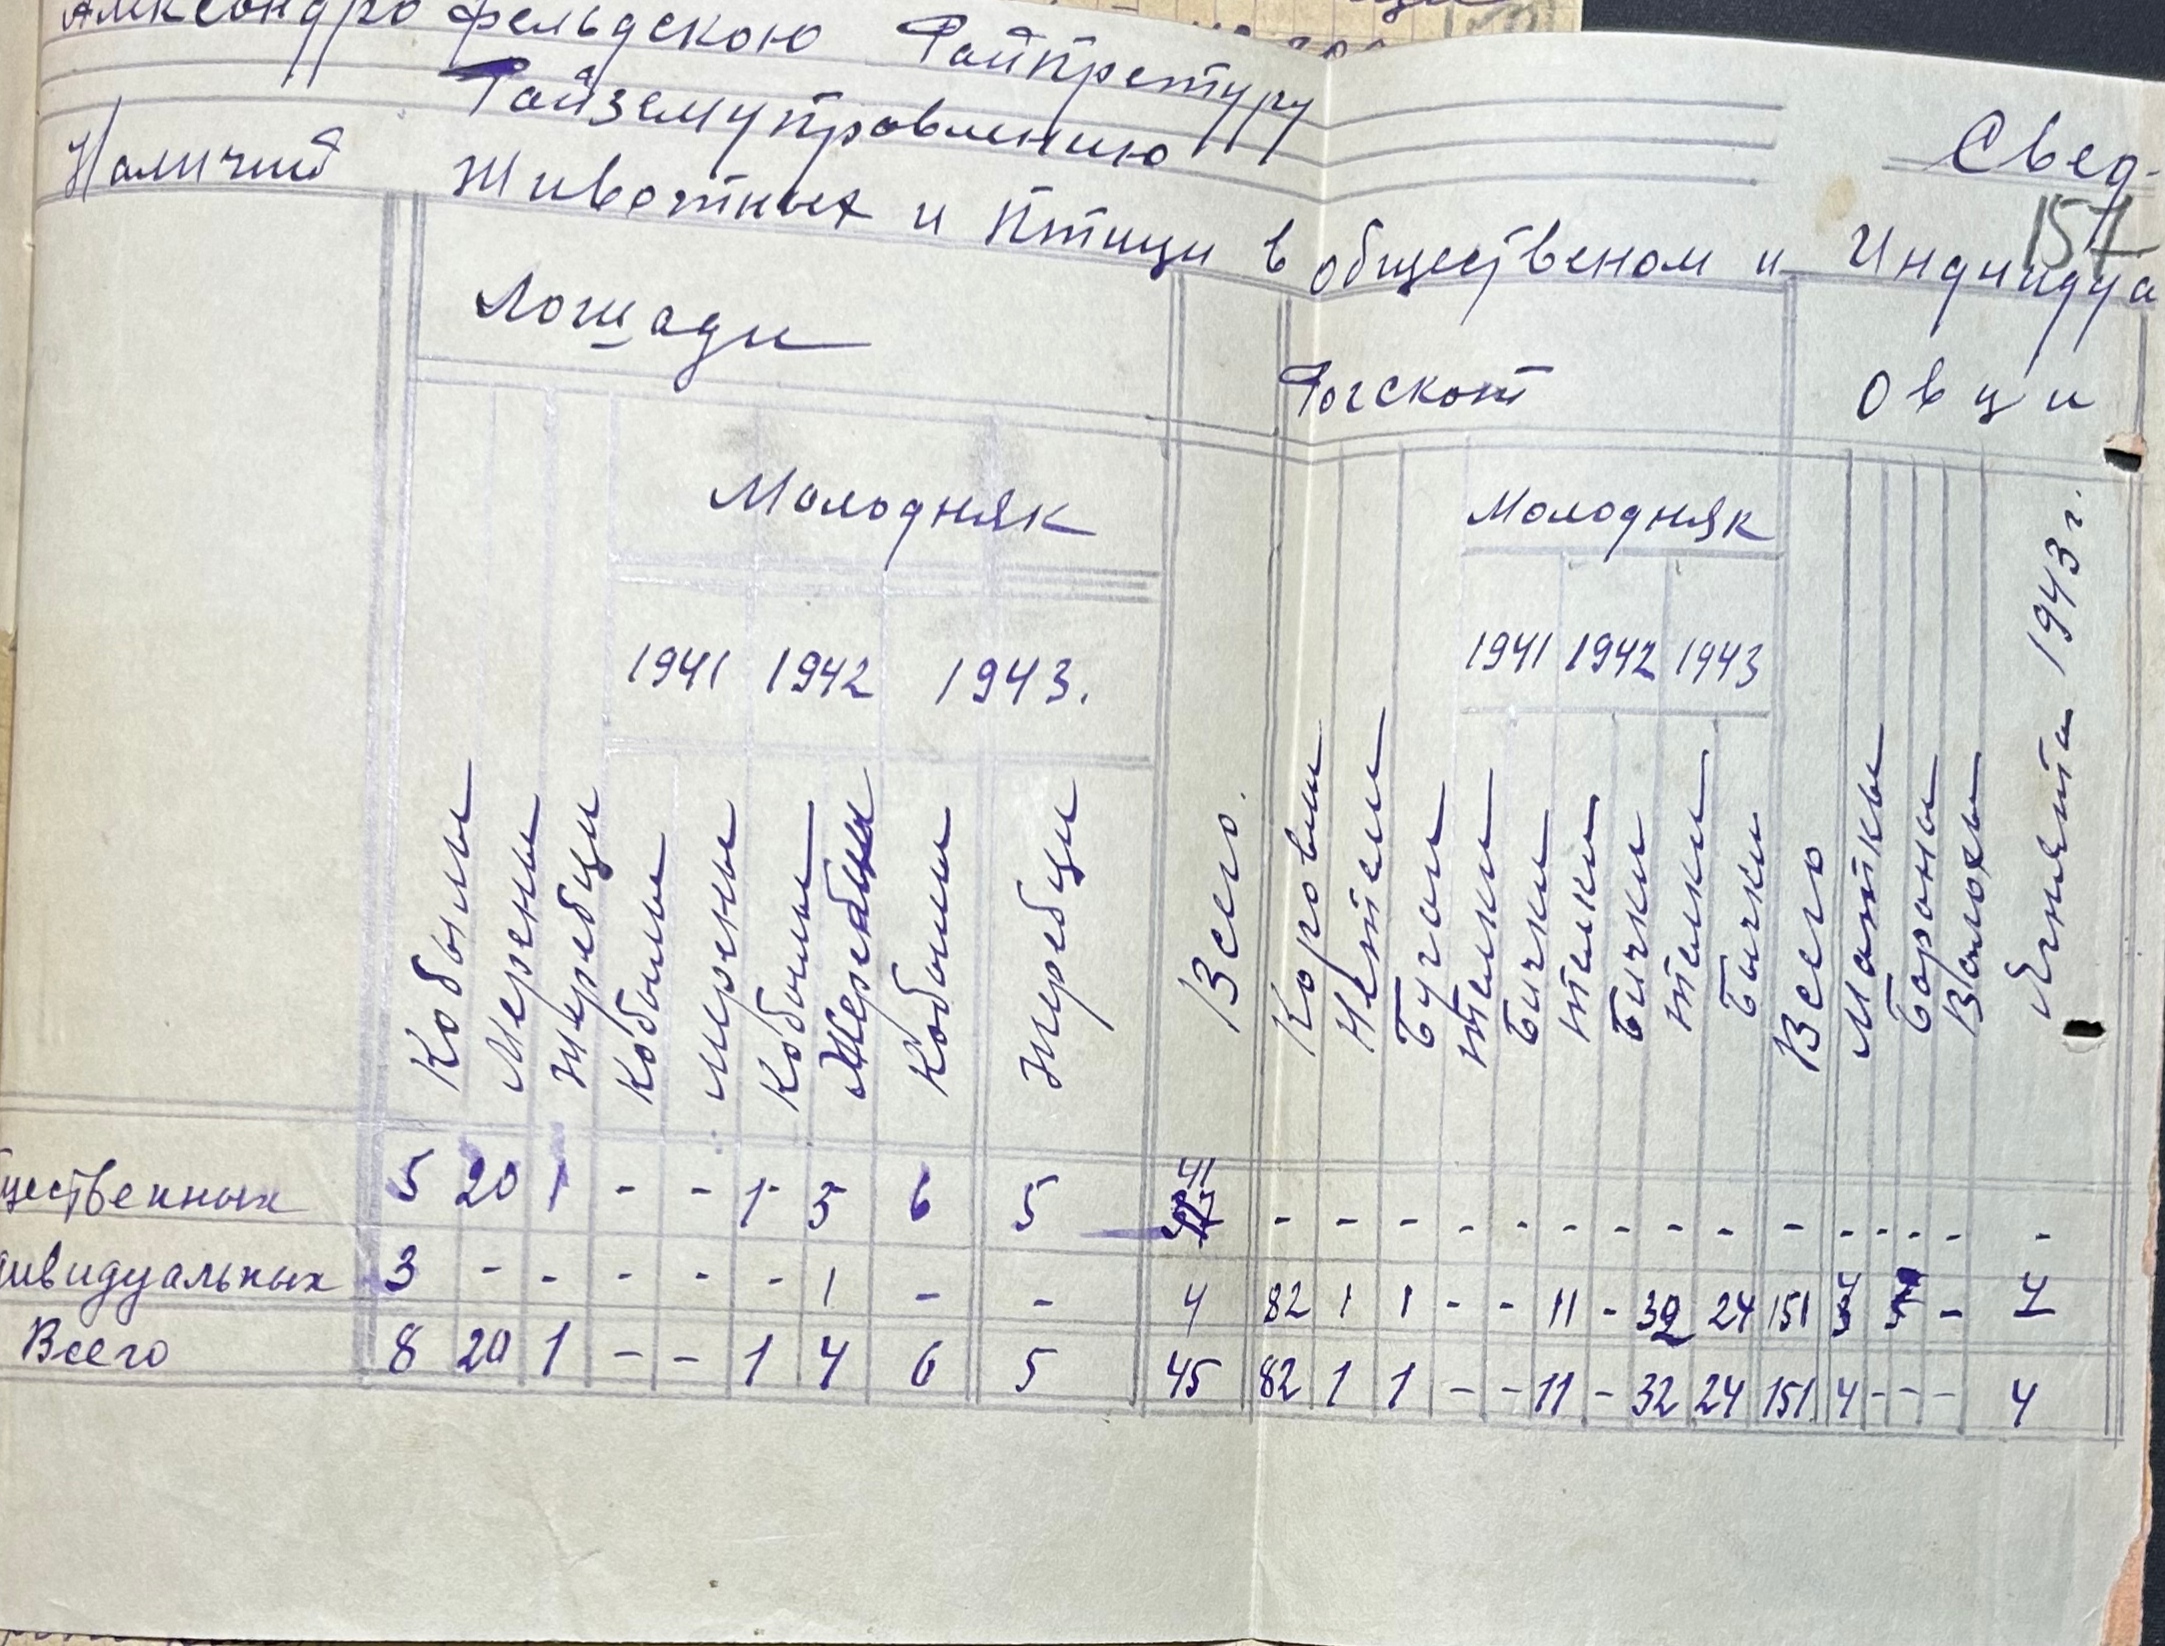 Александрофельдскою Райпретуру
Райземуправлению
Свед-
157
Наличий Животных и Птици в общественом и Индиидуа
Лошади Рогскот Овци
Молодняк Молодняк
1941 1942 1943. 1941 1942 1943
Кобылы Мерены Жеребци Кобылы Мерены Кобылы Жеребцы Кобылы Жеребци Всего. Коровы Нетели Бугаи Телки Бички Телки Бички Телки Бычки Всего Матки Бараны Валохы Ягнята 1943 г.
щественных 5 20 1 - - 1 3 6 5 41 - - - - - - - - - - - - - -
дивидуальных 3 - - - - - 1 - - 4 82 1 1 - - 11 - 32 24 151 4 - 4
Всего 8 20 1 - - 1 4 6 5 45 82 1 1 - - 11 - 32 24 151 4 - - - 4